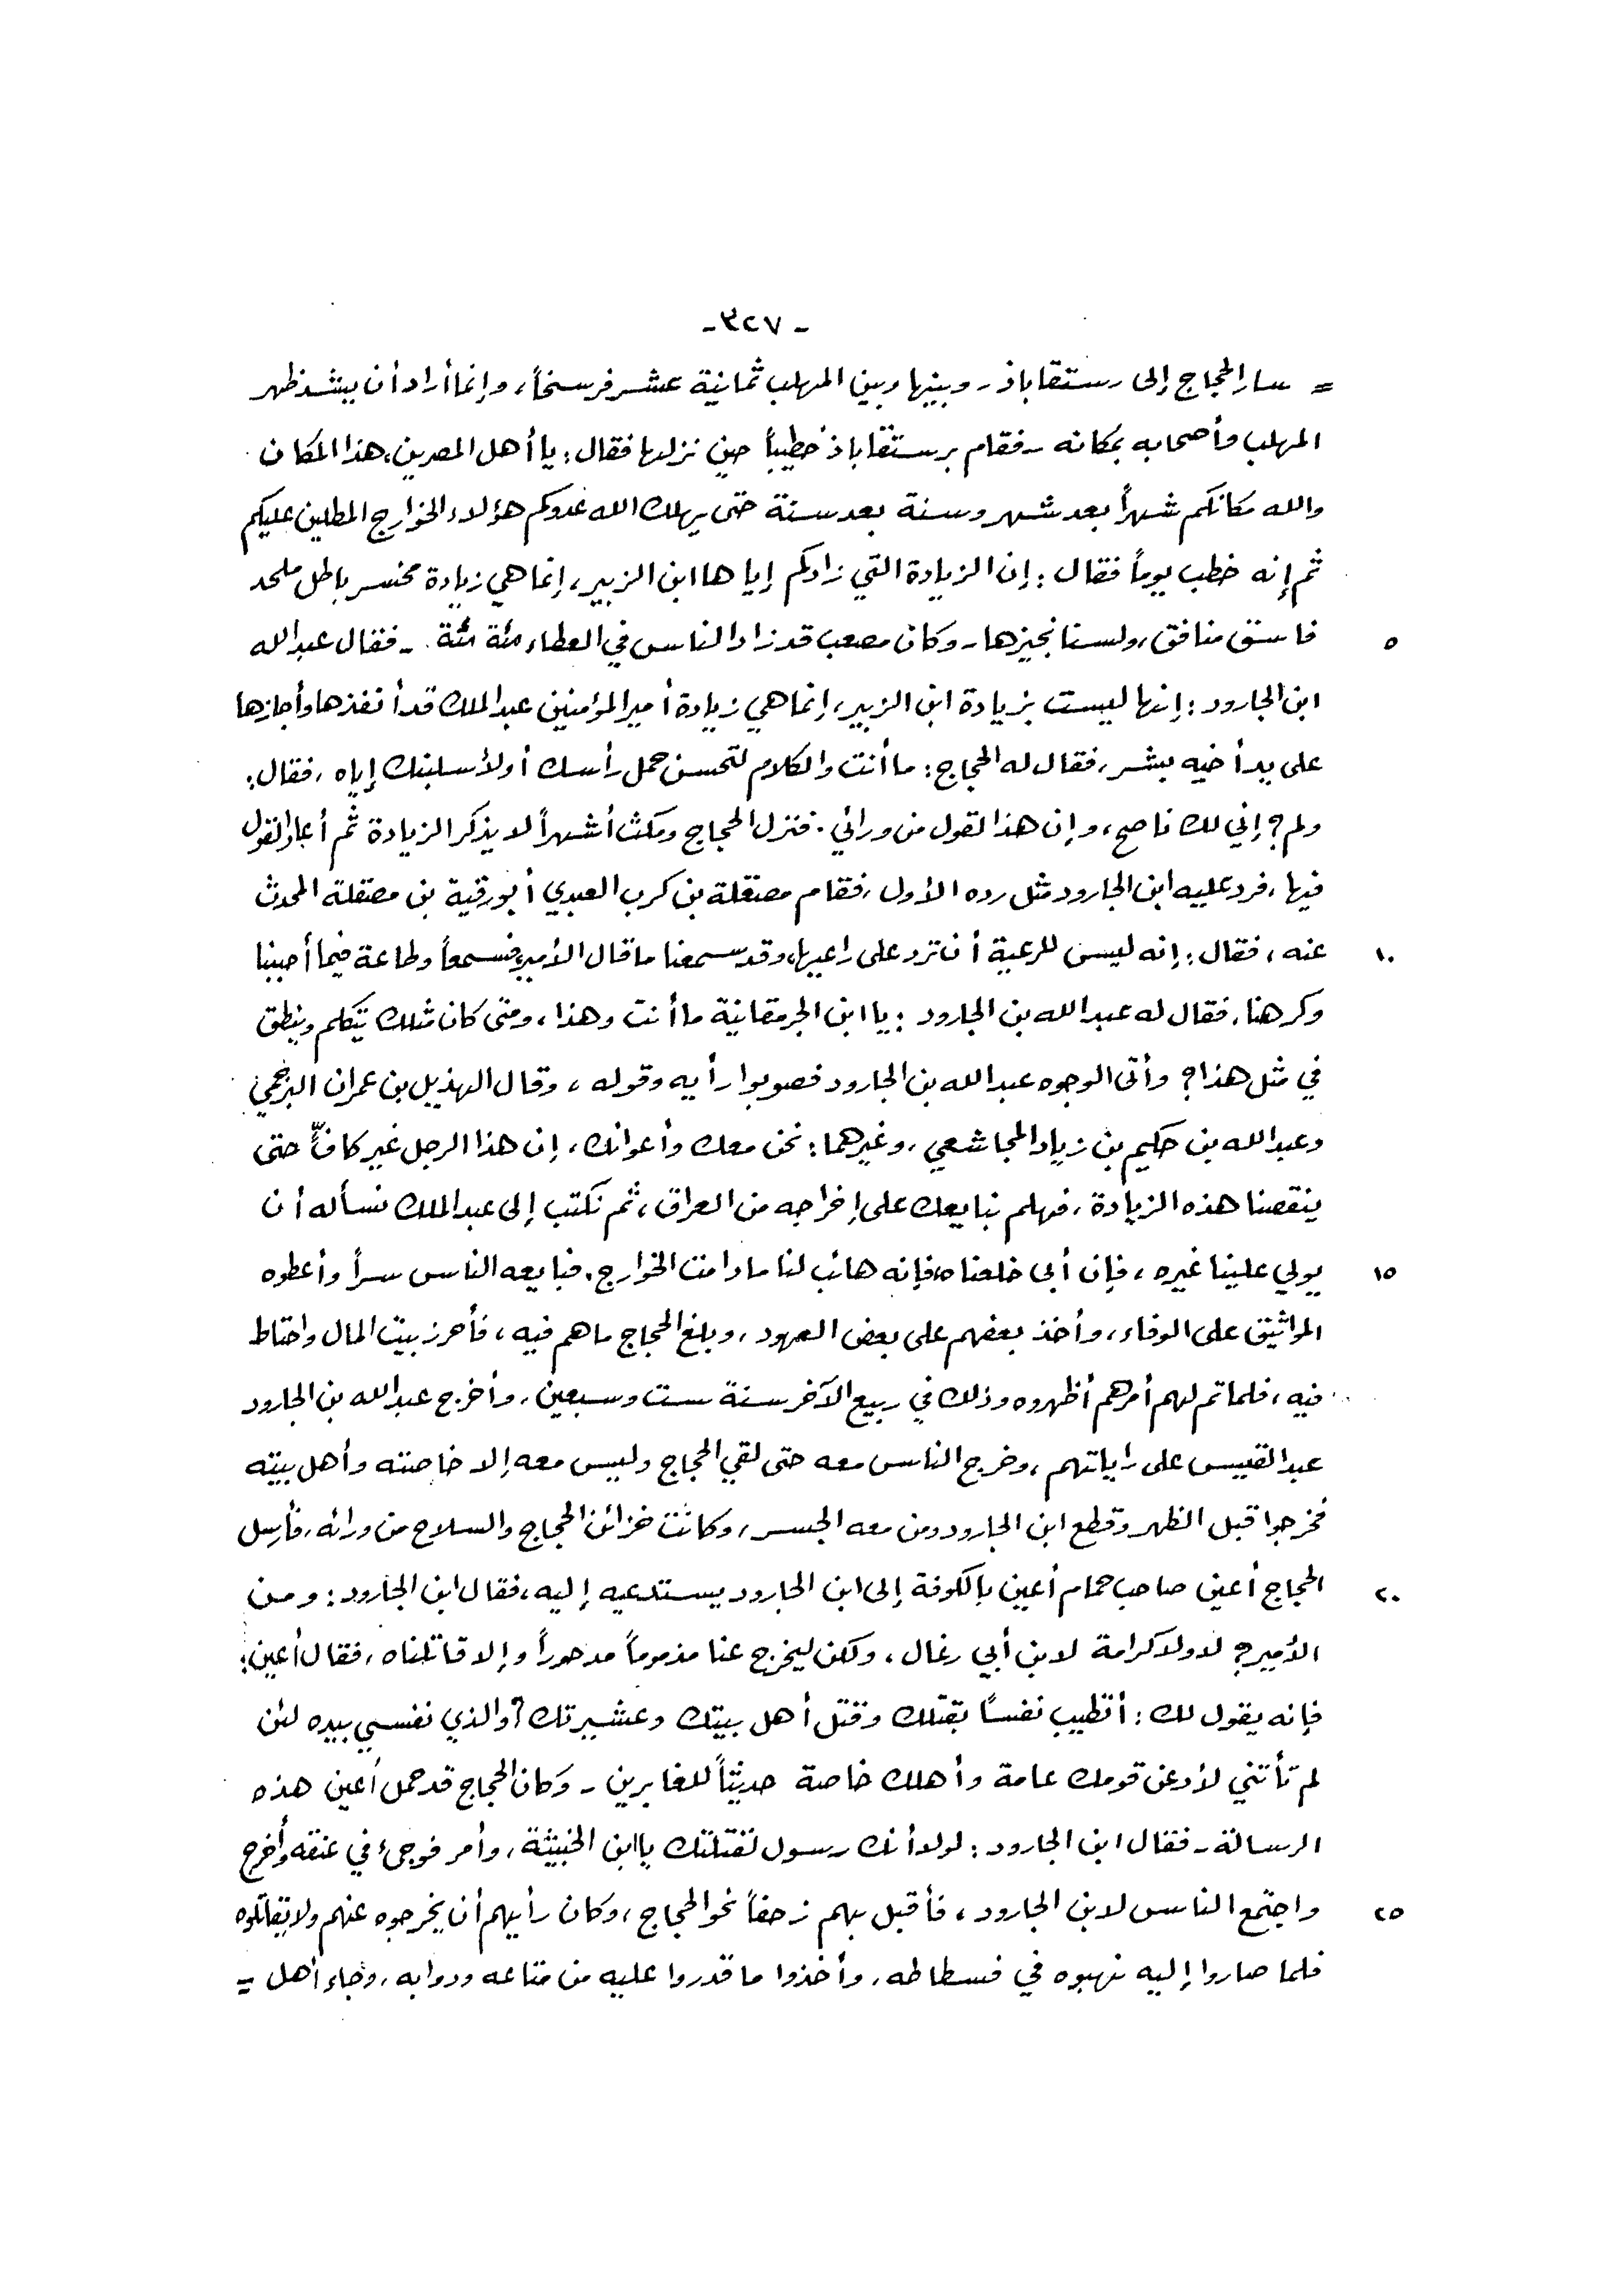 - ٣٢٧ -
= سار الحجاج إلى رستقاباذ - وبينها وبين المهلب ثمانية عشر فرسخاً، وإنما أراد أن يشد ظهر
المهلب وأصحابه بمكانه - فقام برستقاباذ خطيباً حين نزلها فقال: يا أهل المصرين، هذا المكان
والله مكانكم شهراً بعد شهر وسنة بعد سنة حتى يهلك الله عدوكم هؤلاء الخوارج المطلين عليكم
ثم إنه خطب يوماً فقال: إن الزيادة التي زادكم إياها ابن الزبير، إنما هي زيادة مخسر باطل ملحد
٥ فاسق منافق، ولسنا نجيزها - وكان مصعب قد زاد الناس في العطاء مئة مئة - فقال عبدالله
ابن الجارود: إنها ليست بزيادة ابن الزبير، إنما هي زيادة أمير المؤمنين عبد الملك قد أنفذها وأجازها
على يد أخيه بشر، فقال له الحجاج: ما أنت والكلام لتحسن حمل رأسك أو لأسلبنك إياه، فقال:
ولم؟ إني لك ناصح، وإن هذا لقول من ورائي. فنزل الحجاج ومكث أشهراً لا يذكر الزيادة ثم أعاد القول
فيها، فرد عليه ابن الجارود مثل رده الأول، فقام مصقلة بن كرب العبدي أبو رقية بن مصقلة المحدث
١٠ عنه، فقال: إنه ليس للرعية أن ترد على راعيها، وقد سمعنا ما قال الأمير فسمعاً وطاعة فيما أحببنا
وكرهنا، فقال له عبد الله بن الجارود: يا ابن الجرمقانية ما أنت وهذا، ومتى كان مثلك يتكلم وينطق
في مثل هذا؟ وأتى الوجوه عبد الله بن الجارود فصوبوا رأيه وقوله، وقال الهذيل بن عمران البرجمي
وعبد الله بن حكيم بن زياد المجاشعي، وغيرهما: نحن معك وأعوانك، إن هذا الرجل غير كافٍّ حتى
ينقصنا هذه الزيادة، فهلم نبايعك على إخراجه من العراق، ثم نكتب إلى عبد الملك نسأله أن
١٥ يولي علينا غيره، فإن أبى خلعناه، فإنه هائب لنا ما دامت الخوارج. فبايعه الناس سراً وأعطوه
المواثيق على الوفاء، وأخذ بعضهم على بعض العهود، وبلغ الحجاج ما هم فيه، فأحرز بيت المال واحتاط
فيه، فلما تم لهم أمرهم أظهروه وذلك في ربيع الآخر سنة ست وسبعين، وأخرج عبد الله بن الجارود
عبد القيس على راياتهم، وخرج الناس معه حتى لقي الحجاج وليس معه إلا خاصته وأهل بيته
فخرجوا قبل الظهر وقطع ابن الجارود ومن معه الجسر، وكانت خزائن الحجاج والسلاح من ورائه، فأرسل
٢٠ الحجاج أعين صاحب حمام أعين بالكوفة إلى ابن الجارود يستدعيه إليه، فقال ابن الجارود: ومن
الأمير؟ لا ولا كرامة لابن أبي رغال، ولكن ليخرج عنا مذموماً مدحوراً وإلا قاتلناه، فقال أعين:
فإنه يقول لك: أتطيب نفساً بقتلك وقتل أهل بيتك وعشيرتك؟ والذي نفسي بيده لئن
لم تأتني لأدعن قومك عامة وأهلك خاصة حديثاً للغابرين - وكان الحجاج قد حمل أعين هذه
الرسالة - فقال ابن الجارود: لولا أنك رسول لقتلتك يا ابن الخبيثة، وأمر فوجئ في عنقه وأخرج
٢٥ واجتمع الناس لابن الجارود، فأقبل بهم زحفاً نحو الحجاج، وكان رأيهم أن يخرجوه عنهم ولا يقاتلوه
فلما صاروا إليه نهبوه في فسطاطه، وأخذوا ما قدروا عليه من متاعه ودوابه، وجاء أهل =